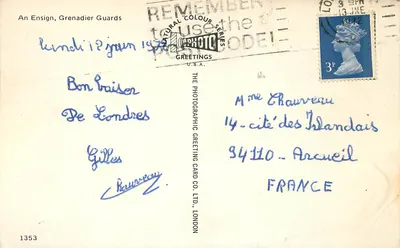 An Ensign, Grenadier Guards
REMEMBER
to use the
NATURAL COLOUR SERIES
PHOTO
GREETINGS
U.S.A.
3P
Lundi 19 juin 1972
Bon baiser
De Londres
Gilles
Chauveau
THE PHOTOGRAPHIC GREETING CARD CO. LTD., LONDON
Mme Chauveau
14 - cité des Irlandais
94110 - Arcueil
FRANCE
1353